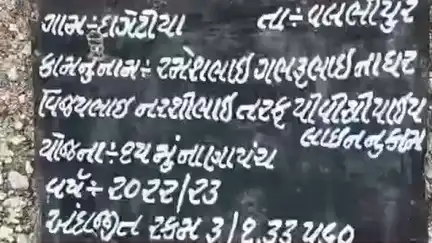 ગામ÷દાગેટીયા તા÷વલભીપુર
કામનુ નામ÷ રમેશભાઇ ગભરૂભાઇ ના ઘર
વિજયભાઇ નરશીભાઇ તરફ પીવીસી પાઇપ
લાઇન નુ કામ
યોજના÷૬૫ મું નાણાપંચ
વર્ષ÷૨૦૨૨/૨૩
અંદાજીત રકમ રૂ/૧.૩૩ ૫૬૦